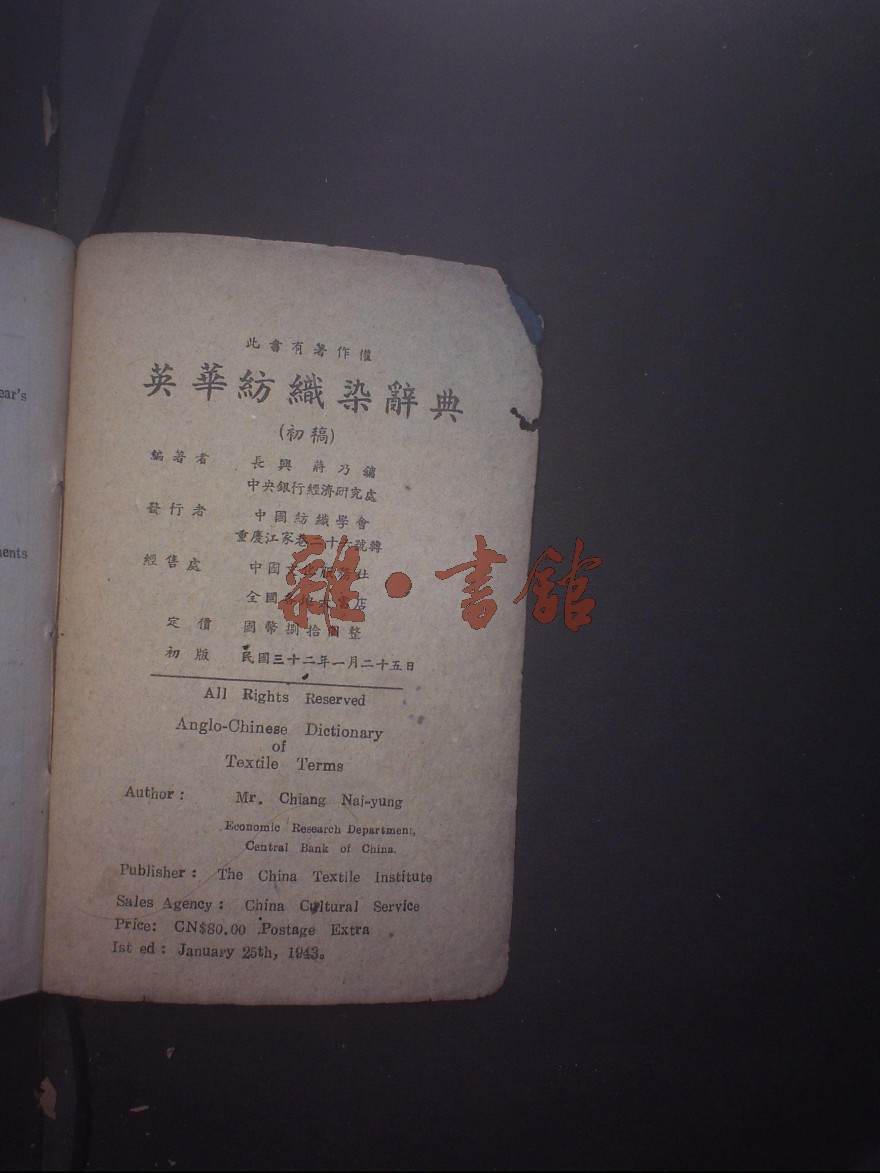 ear's
ents
此書有著作權
英華紡織染辭典
(初稿)
編著者 長興 蔣乃鏞
中央銀行經濟研究處
發行者 中國紡織學會
重慶江家巷二十六號轉
經售處 中国文化服務社
全國各地大書店
定價 國幣捌拾圓整
初版 民國三十二年一月二十五日
All Rights Reserved
Anglo-Chinese Dictionary
of
Textile Terms
Author : Mr. Chiang Nai-yung
Economic Research Department,
Central Bank of China.
Publisher : The China Textile Institute
Sales Agency : China Cultural Service
Price: CN$80.00 Postage Extra
Ist ed : January 25th, 1943.
雜·書館